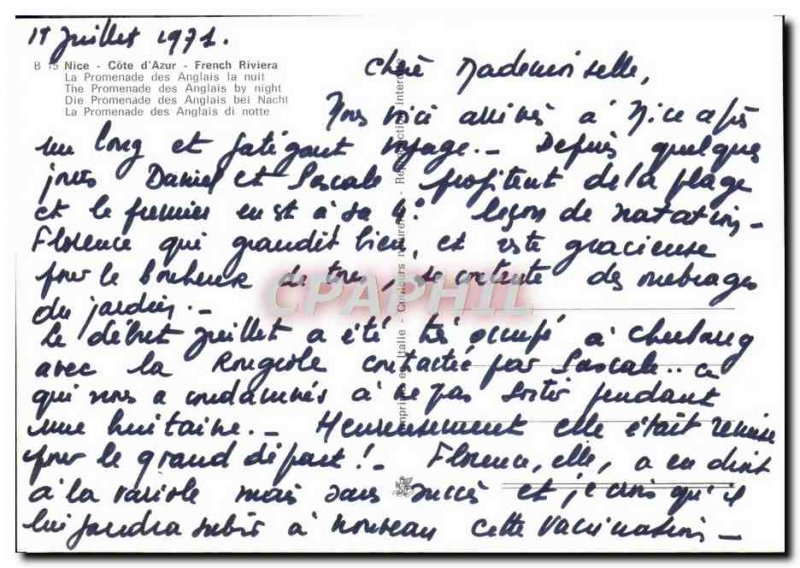 Juillet 1971.
B 15 Nice - Côte d'Azur - French Riviera
La Promenade des Anglais la nuit
The Promenade des Anglais by night
Die Promenade des Anglais bei Nacht
La Promenade des Anglais di notte
Chère Mademoiselle,
Nous voici arrivés à Nice après
un long et fatigant voyage.- Depuis quelques
jours Daniel et Pascale profitent de la plage
et le premier en est à sa leçon de natation -
Florence qui grandit bien, et reste gracieuse
pour le bonheur de tous, se contente des ombrages
du jardin.-
Le début Juillet a été très occupé à Cherbourg
avec la Rougeole contactée par Pascale.. ce
qui nous a condamnés à ne pas sortir pendant
une huitaine.- Heureusement elle était remise
pour le grand départ!- Florence, elle, a eu droit
à la variole mais sans succès et je crois qu'il
lui faudra subir à nouveau cette vaccination -
Imprimé en Italie - Couleurs naturelles - Reproduction interdite
CPAPHIL